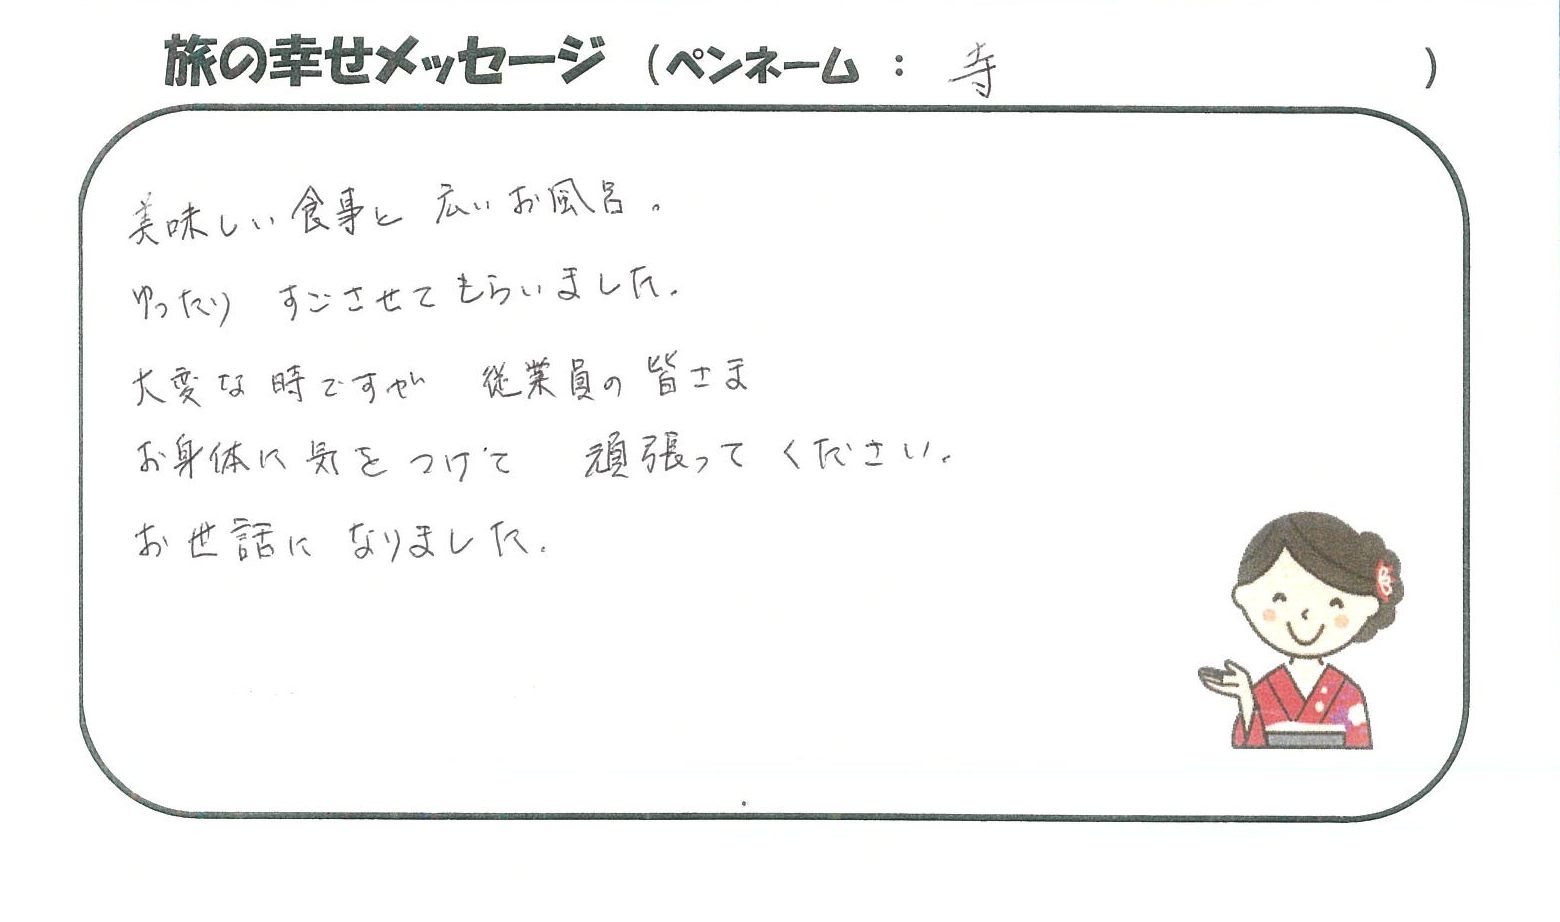 旅の幸せメッセージ （ペンネーム ： 寺 ）
美味しい食事と 広いお風呂。
ゆったり すごさせてもらいました。
大変な時ですが 従業員の皆さま
お身体に気をつけて 頑張ってください。
お世話に なりました。